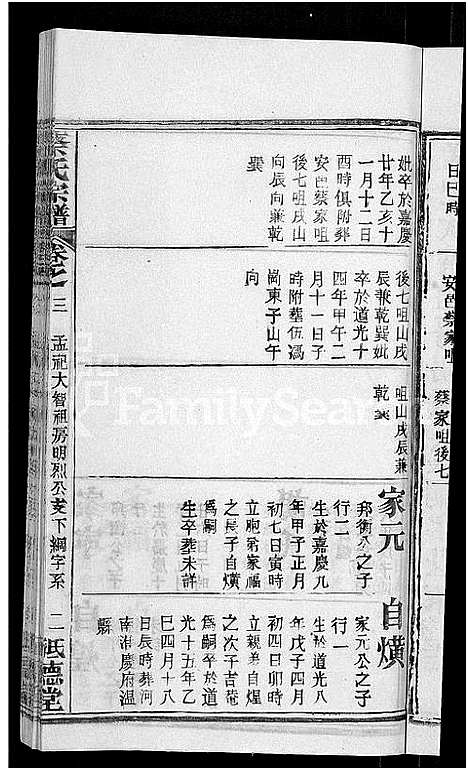 日巳時
安邑蔡家咀
蔡家咀後七
妣卒於嘉慶
廿年乙亥十
一月十二日
酉時俱附葬
安邑蔡家咀
後七咀戌山
向辰向兼乾
巽
後七咀山戌
辰兼乾巽妣
卒於道光十
四年甲午二
月十一日子
時附塟伍馮
崗東子山午
向
咀山戌辰兼
乾巽
家元
邦衡公之子
行二
生於嘉慶九
年甲子正月
初七日寅時
立胞弟家福
之長子自熿
爲嗣
生卒葬未詳
自熿
家元公之子
行一
生於道光八
年戊子四月
初四日卯時
立親弟自煋
之次子吉菴
爲嗣卒於道
光十五年乙
巳四月十八
日辰時葬河
南淮慶府温
縣
蔡氏宗譜
卷之三
孟祀大智祖房明烈公支下綱字系
二
祇德堂
FamilySear